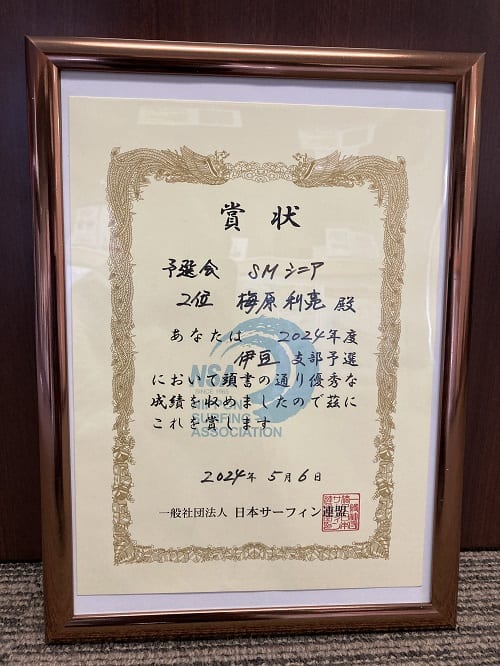 賞状
予選会 SMシニア
2位 梅原利亮 殿
あなたは 2024年度
伊豆 支部予選
において頭書の通り優秀な
成績を収めましたので茲に
これを賞します
NSA
SINCE 1965
NIPPON
SURFING
ASSOCIATION
2024年 5月6日
一般社団法人 日本サーフィン連盟